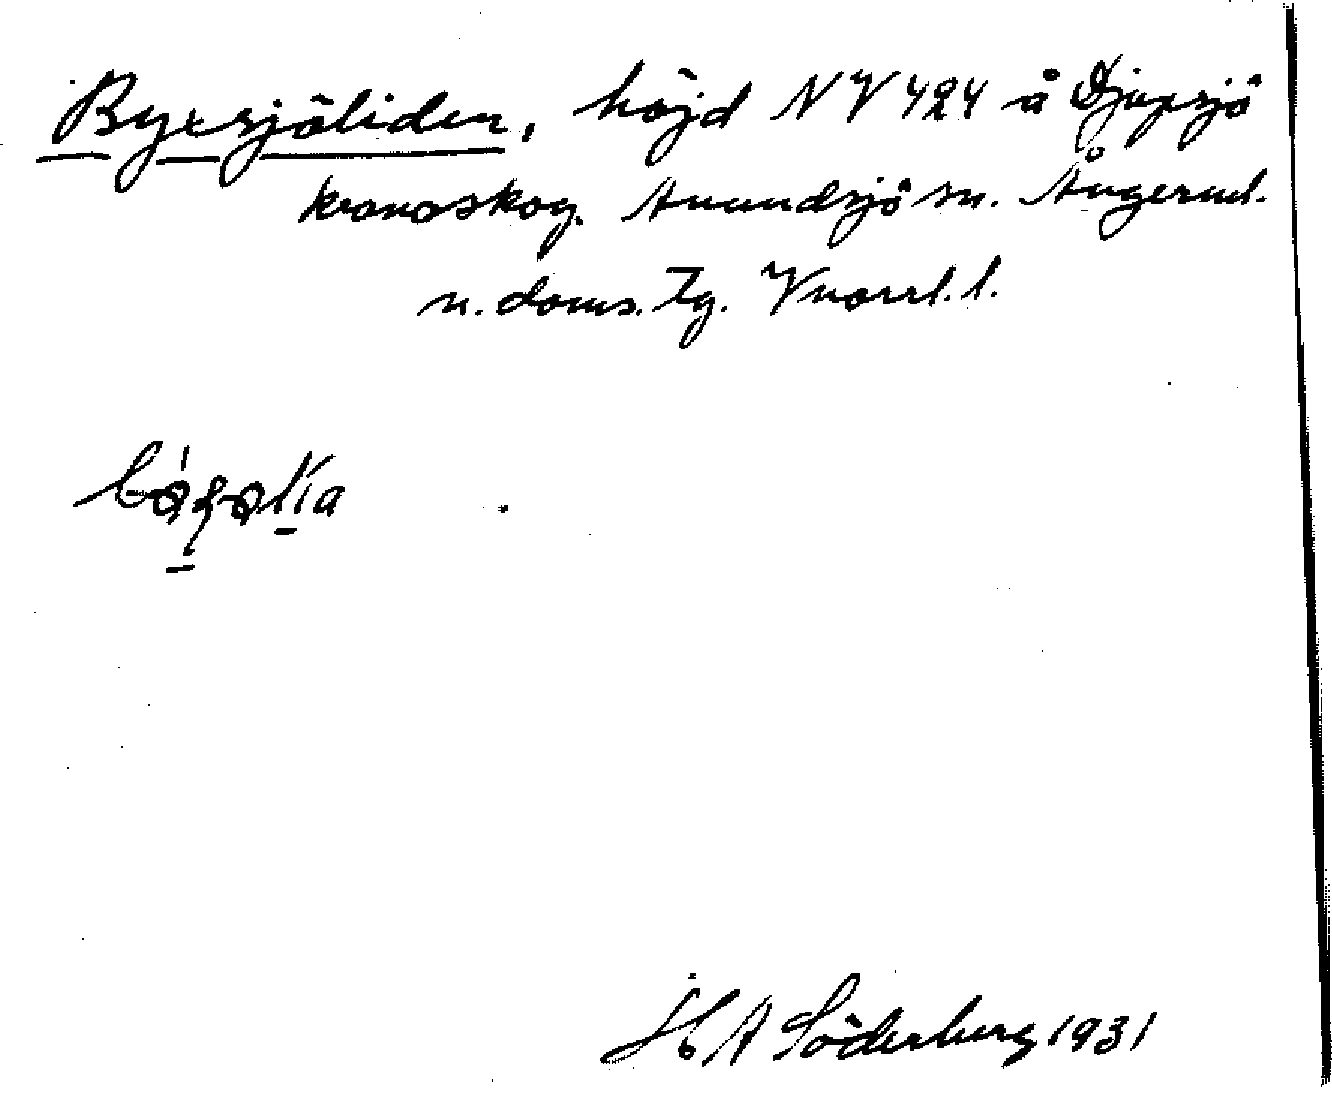 Byxsjöliden, höjd NV 424 å Djupsjö
kronoskog. Anundsjö sn. Ångerml.
n. doms. Tg. Vnorrl. l.
H A Söderberg 1931